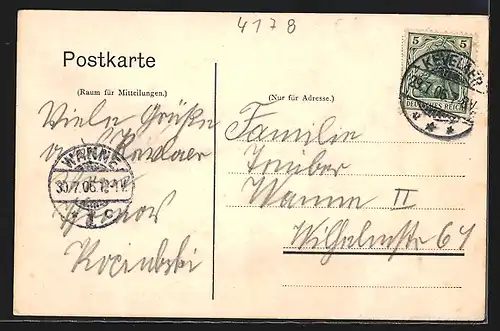 4178
Postkarte
(Raum für Mitteilungen.)
Viele Grüße
Kevelaer
WANNE
30.7.06
(Nur für Adresse.)
Familie
Wanne II
Wilhelmstr 61
5 5
DEUTSCHES REICH
KEVELAER
7.06